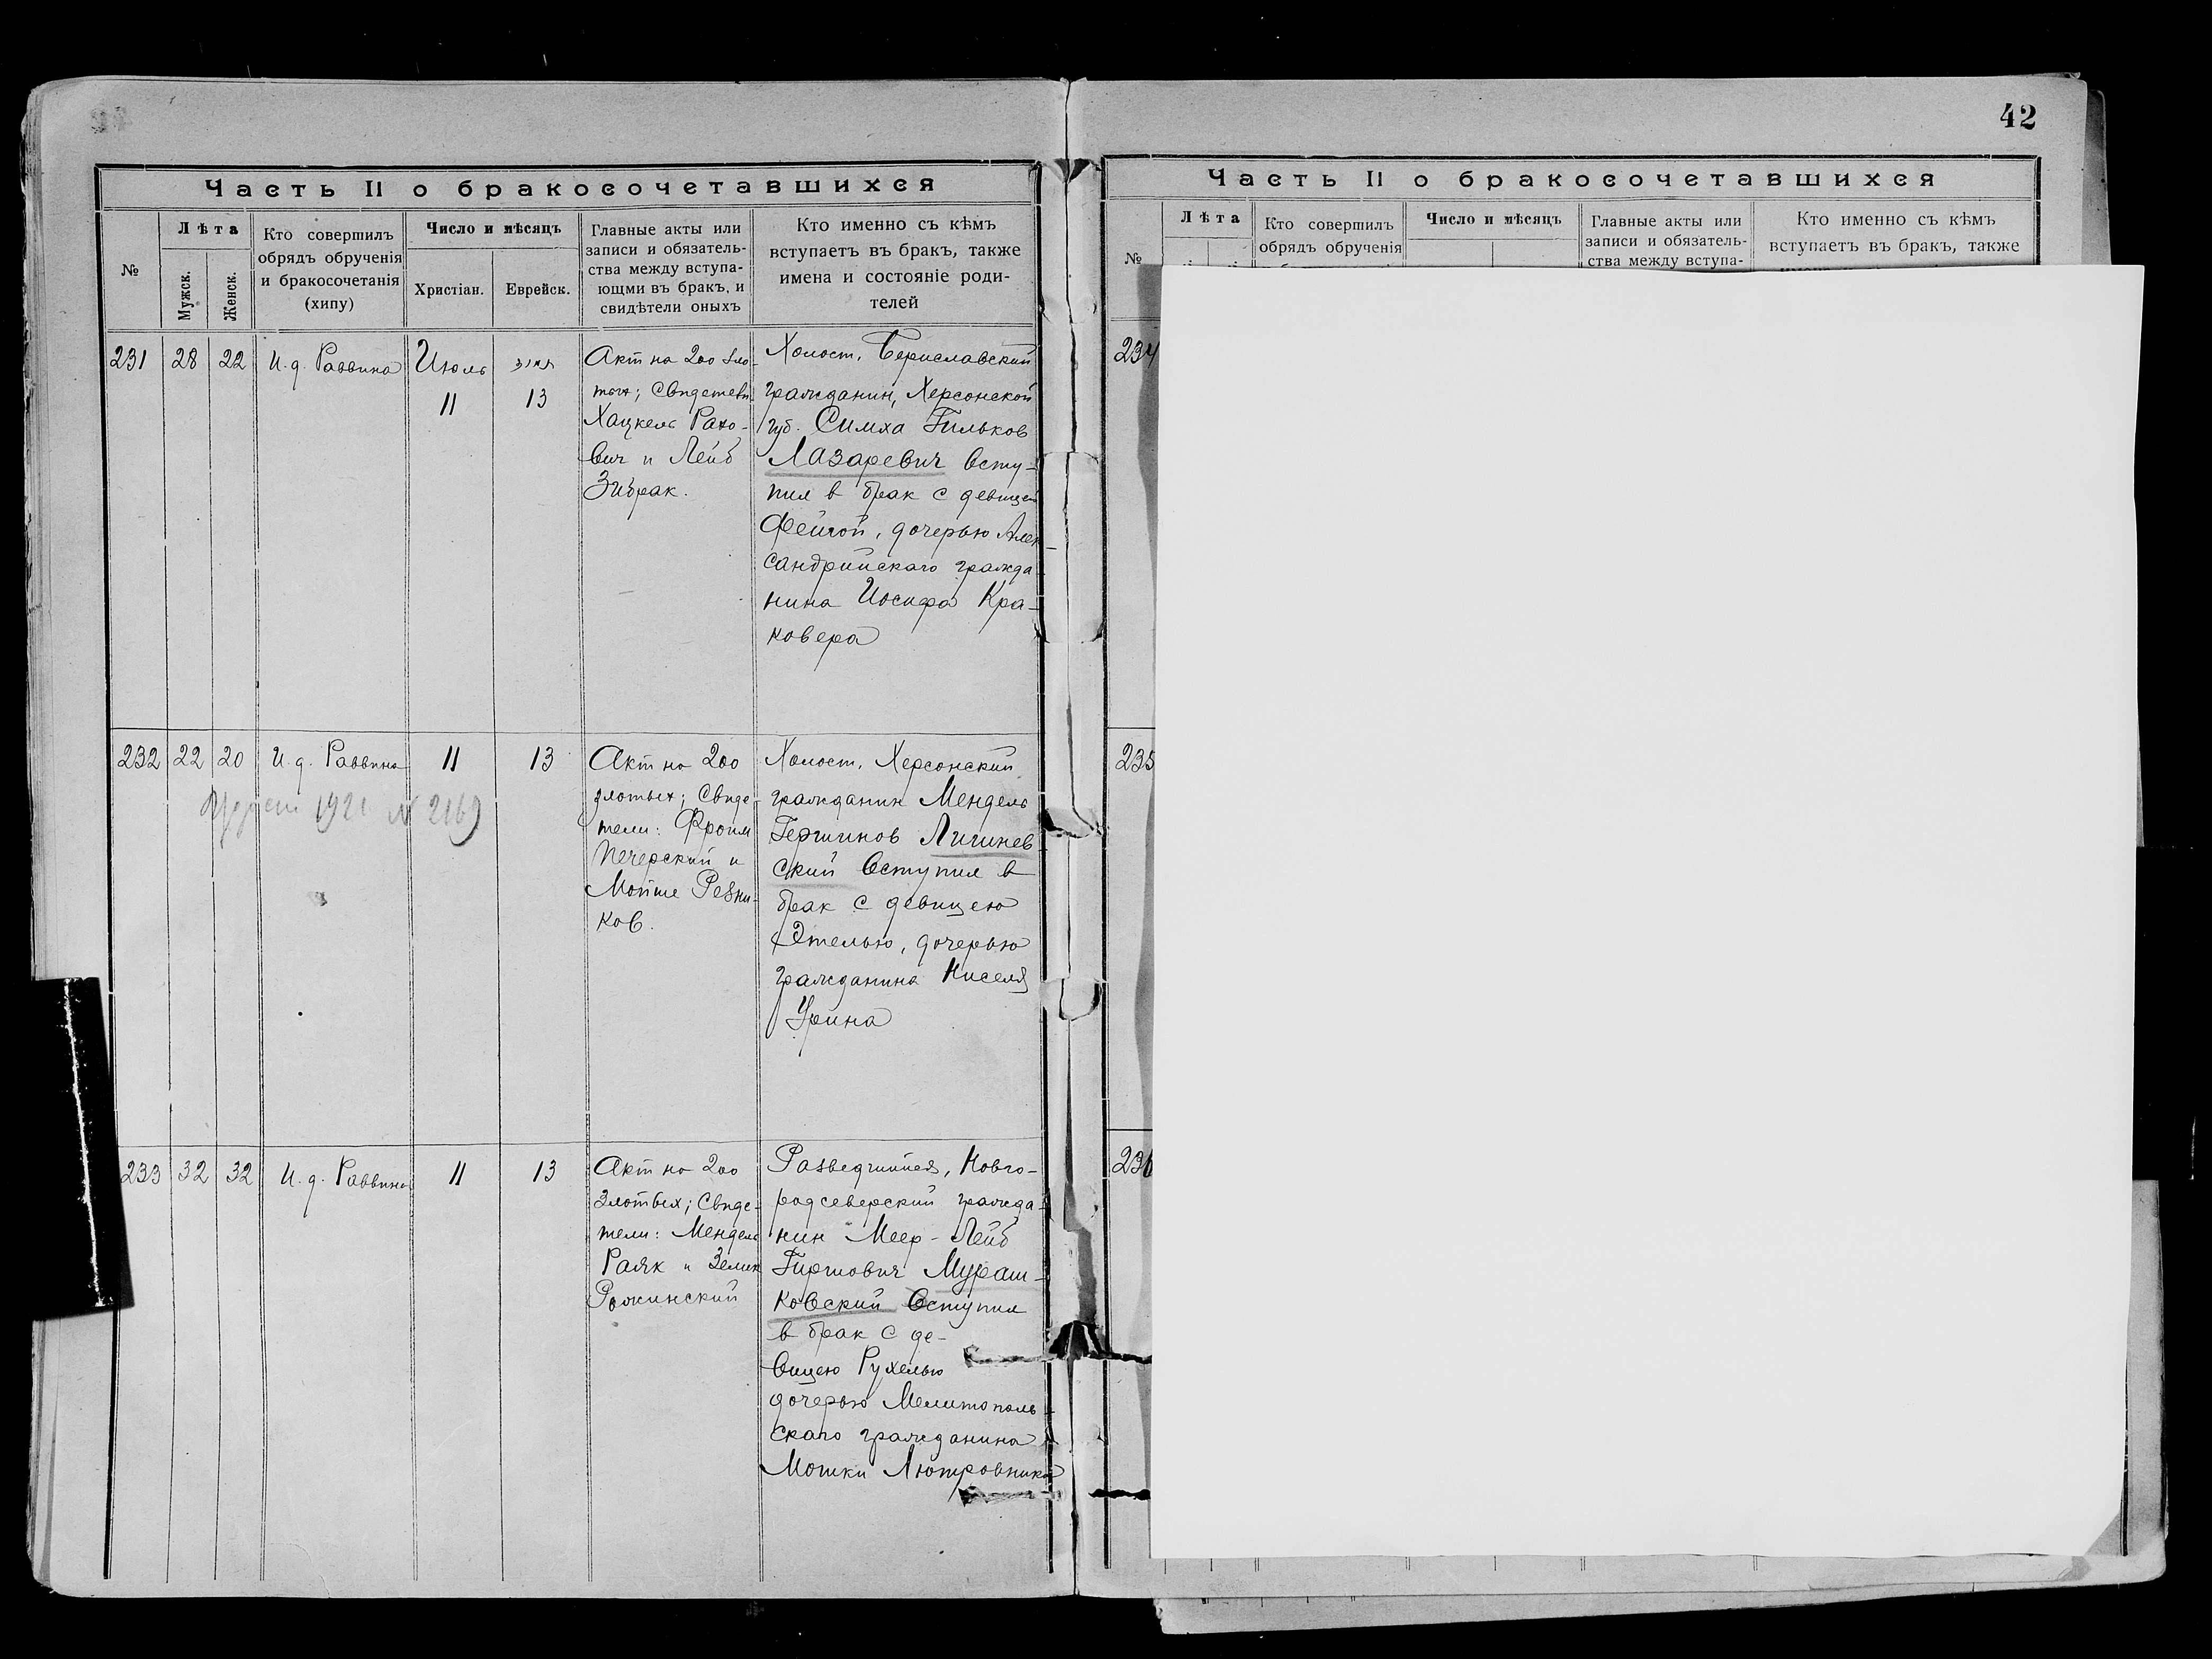 42
Часть II о бракосочетавшихся
№
Лѣта
Мужск.
Женск.
Кто совершилъ
обрядъ обрученія
и бракосочетанія
(хипу)
Число и мѣсяцъ
Христіан.
Еврейск.
Главные акты или
записи и обязатель-
ства между вступа-
ющми въ бракъ, и
свидѣтели оныхъ
Кто именно съ кѣмъ
вступаетъ въ бракъ, также
имена и состояніе роди-
телей
231
28
22
И. д. Раввина
Июль
11
13
Акт на 200 зло-
тых; Свидетели:
Хацкель Рахо-
вич и Лейб
Зибрак.
Холост, Бериславский
гражданин, Херсонской
губ. Симха Гильков
Лазаревич Всту-
пил в брак с девицей
Фейгой, дочерью Алек
сандрийскаго гражда
нина Иосифа Кра-
ковера
232
22
20
И. д. Раввина
11
13
1921 № 2169
Акт на 200
злотых; Свиде-
тели: Фроим
Печерский и
Мойше Резни-
ков.
Холост, Херсонский
гражданин Мендель
Гершинов Лигинев
ский Вступил в
брак с девицею
Этелью, дочерью
гражданина Киселя
Урина
233
32
32
И. д. Раввина
11
13
Акт на 200
Злотых; Свиде-
тели: Мендель
Раяк и Зелик
Рожинский
Разведшийся, Новго-
родсеверский гражда-
нин Меер-Лейб
Гиршович Мураш-
ковский Вступил
в брак с де-
вицею Рухелью
дочерью Мелитополь-
скаго гражданина
Мошки Лютровника
Часть II о бракосочетавшихся
№
Лѣта
Кто совершилъ
обрядъ обрученія
Число и мѣсяцъ
Главные акты или
записи и обязатель-
ства между вступа-
Кто именно съ кѣмъ
вступаетъ въ бракъ, также
234
235
236